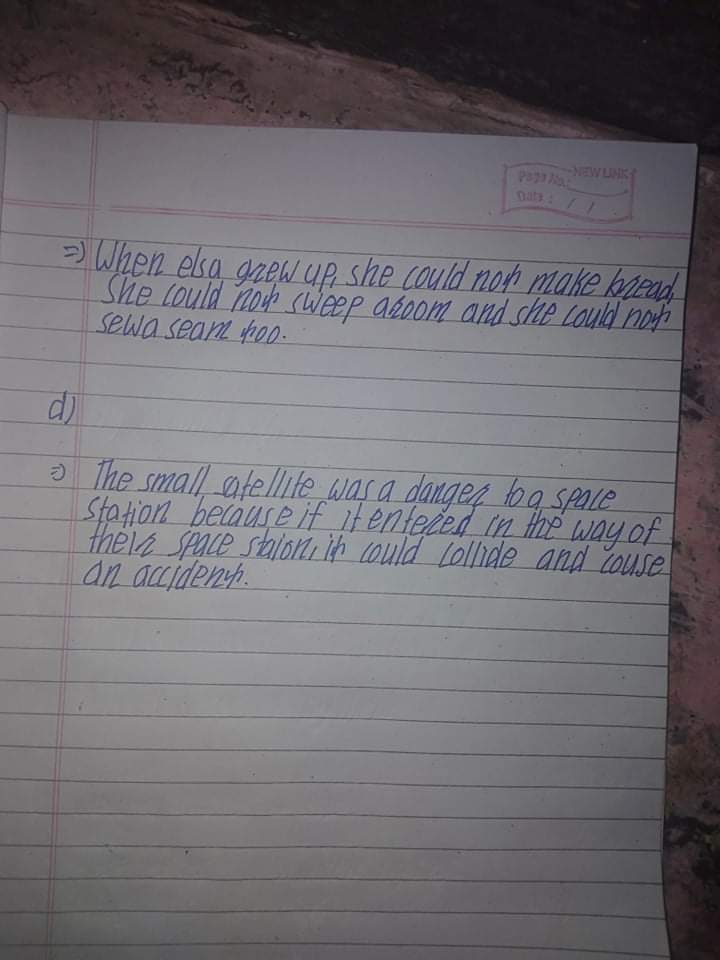 NEW LINK
Page No.:
Date : / /
=) When elsa grew up, she could not make bread,
She could not sweep a room and she could not
sew a seam too.
d)
=) The small satellite was a danger to a space
station because if it entered in the way of
their space staion, it could collide and couse
an accident.